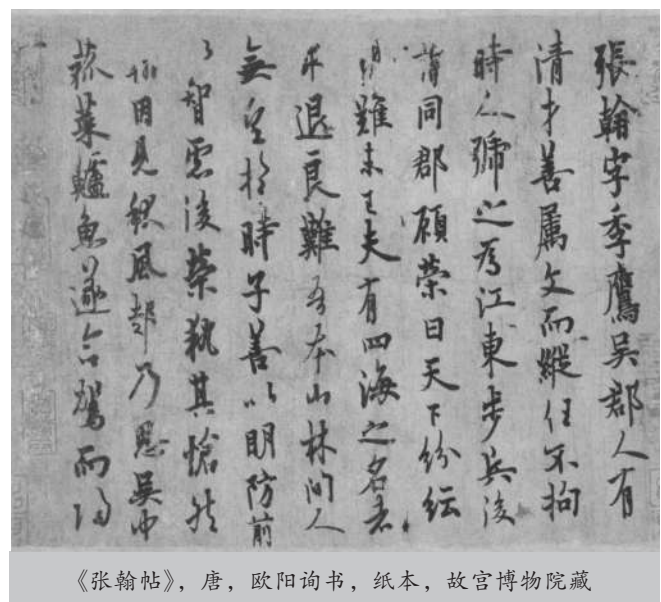 張翰字季鷹吳郡人有
清才善屬文而縱任不拘
時人號之為江東步兵後
謂同郡顧榮曰天下紛紜
禍難未已夫有四海之名者
求退良難吾本山林間人
無望於時子善以明防前
以智慮後榮執其愴然
翰因見秋風起乃思吳中
菰菜鱸魚遂命駕而歸
《张翰帖》，唐，欧阳询书，纸本，故宫博物院藏